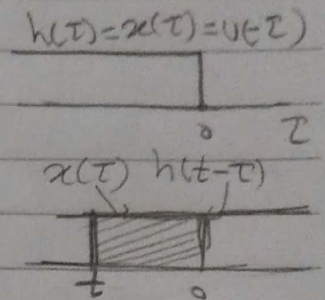 h(τ)=x(τ)=u(-τ)
0 τ
x(τ) h(t-τ)
t 0